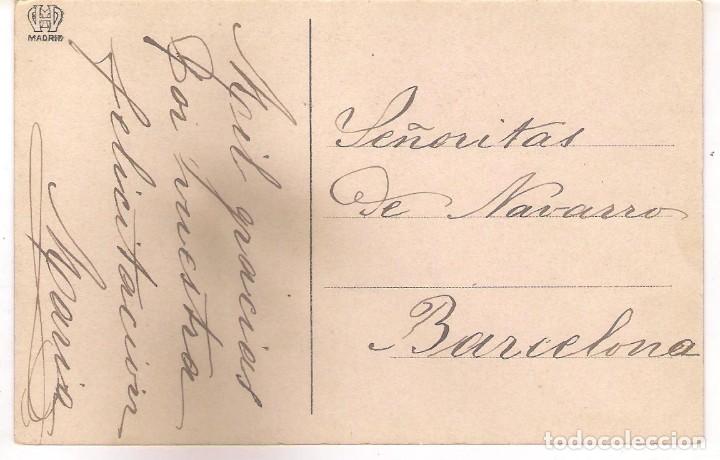 MADRID
Mil gracias
Por vuestra
felicitación
Maria
Señoritas
de Navarro
Barcelona
todocoleccion.net